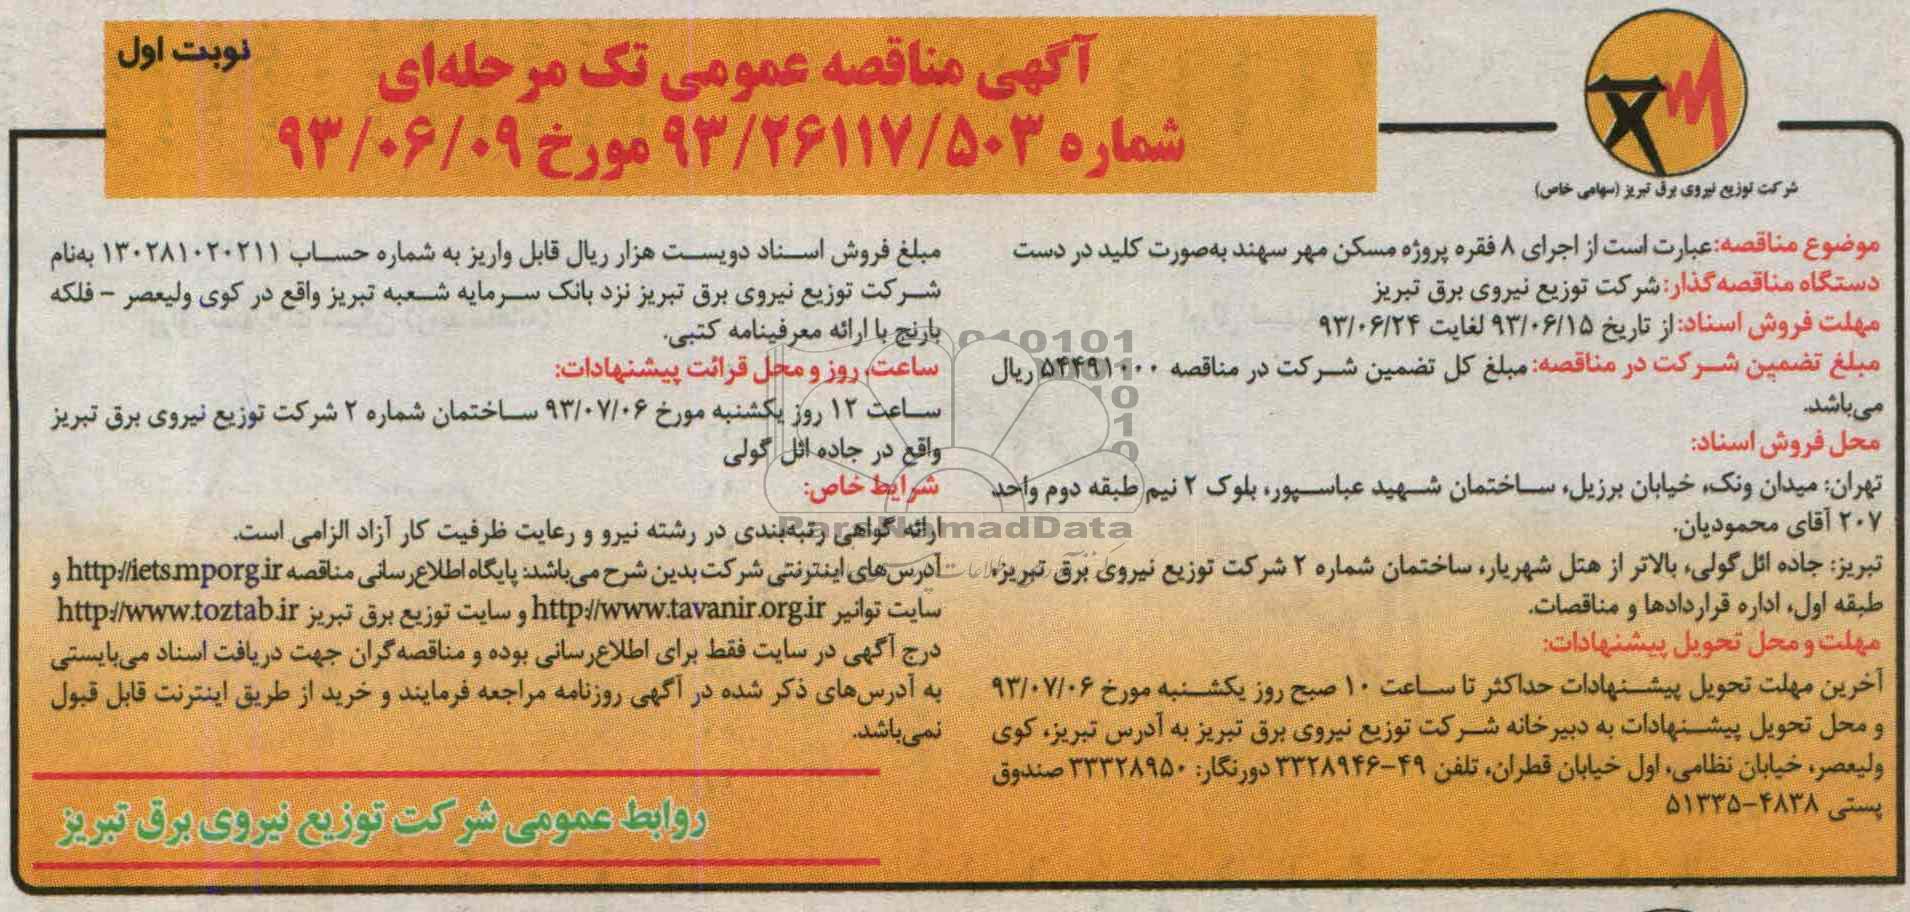 نوبت اول
آگهی مناقصه عمومی تک مرحله‌ای
شماره ۹۳/۲۶۱۱۷/۵۰۳ مورخ ۹۳/۰۶/۰۹
شرکت توزیع نیروی برق تبریز (سهامی خاص)
موضوع مناقصه: عبارت است از اجرای ۸ فقره پروژه مسکن مهر سهند به‌صورت کلید در دست
دستگاه مناقصه‌گذار: شرکت توزیع نیروی برق تبریز
مهلت فروش اسناد: از تاریخ ۹۳/۰۶/۱۵ لغایت ۹۳/۰۶/۲۴
مبلغ تضمین شرکت در مناقصه: مبلغ کل تضمین شرکت در مناقصه ۵۴۴۹۱۰۰۰ ریال
می‌باشد.
محل فروش اسناد:
تهران: میدان ونک، خیابان برزیل، ساختمان شهید عباسپور، بلوک ۲ نیم طبقه دوم واحد
۲۰۷ آقای محمودیان.
تبریز: جاده ائل‌گولی، بالاتر از هتل شهریار، ساختمان شماره ۲ شرکت توزیع نیروی برق تبریز،
طبقه اول، اداره قراردادها و مناقصات.
مهلت و محل تحویل پیشنهادات:
آخرین مهلت تحویل پیشنهادات حداکثر تا ساعت ۱۰ صبح روز یکشنبه مورخ ۹۳/۰۷/۰۶
و محل تحویل پیشنهادات به دبیرخانه شرکت توزیع نیروی برق تبریز به آدرس تبریز، کوی
ولیعصر، خیابان نظامی، اول خیابان قطران، تلفن ۴۹-۳۳۲۸۹۴۶ دورنگار: ۳۳۳۲۸۹۵۰ صندوق
پستی ۴۸۳۸-۵۱۳۳۵
مبلغ فروش اسناد دویست هزار ریال قابل واریز به شماره حساب ۱۳۰۲۸۱۰۲۰۲۱۱ به‌نام
شرکت توزیع نیروی برق تبریز نزد بانک سرمایه شعبه تبریز واقع در کوی ولیعصر - فلکه
بارنج با ارائه معرفینامه کتبی.
ساعت، روز و محل قرائت پیشنهادات:
ساعت ۱۲ روز یکشنبه مورخ ۹۳/۰۷/۰۶ ساختمان شماره ۲ شرکت توزیع نیروی برق تبریز
واقع در جاده ائل گولی
شرایط خاص:
ارائه گواهی رتبه‌بندی در رشته نیرو و رعایت ظرفیت کار آزاد الزامی است.
آدرس‌های اینترنتی شرکت بدین شرح می‌باشد: پایگاه اطلاع‌رسانی مناقصه http://iets.mporg.ir و
سایت توانیر http://www.tavanir.org.ir و سایت توزیع برق تبریز http://www.toztab.ir
درج آگهی در سایت فقط برای اطلاع‌رسانی بوده و مناقصه‌گران جهت دریافت اسناد می‌بایستی
به آدرس‌های ذکر شده در آگهی روزنامه مراجعه فرمایند و خرید از طریق اینترنت قابل قبول
نمی‌باشد.
روابط عمومی شرکت توزیع نیروی برق تبریز